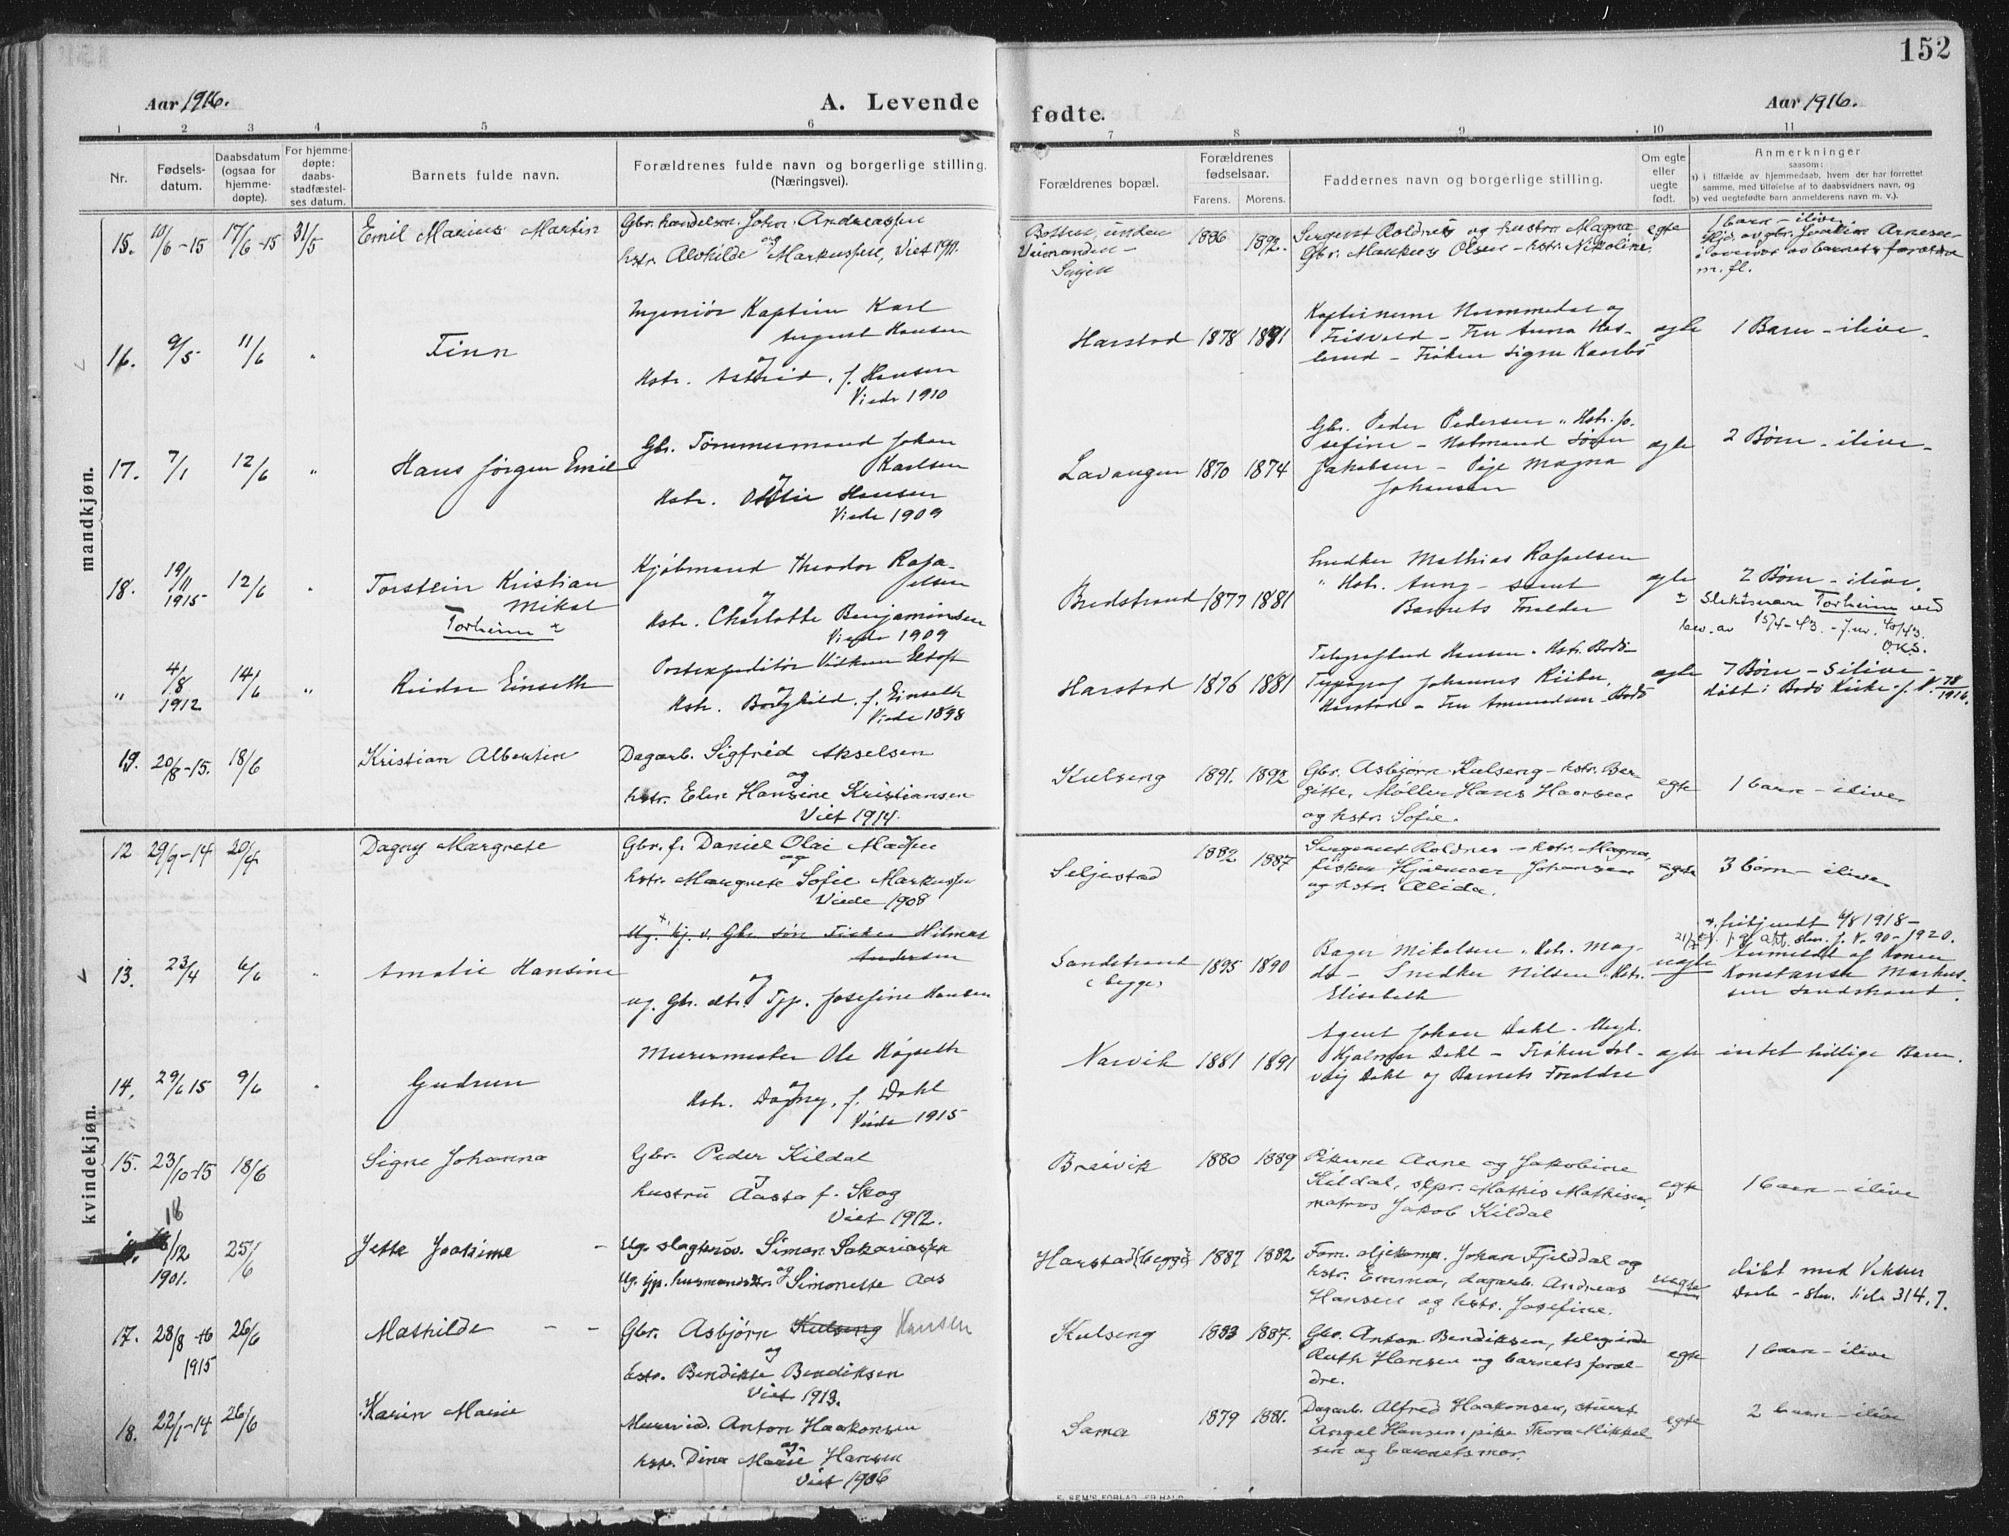 152
Aar 1916.
A. Levende
fødte.
Aar 1916.
1 2 3 4 5 6 7 8 9 10 11
Nr.
Fødsels-
datum.
Daabsdatum
(ogsaa for
hjemme-
døpte).
For hjemme-
døpte:
daabs-
stadfæstel-
ses datum.
Barnets fulde navn.
Forældrenes fulde navn og borgerlige stilling.
(Næringsvei).
Forældrenes bopæl.
Forældrenes
fødselsaar.
Farens. Morens.
Faddernes navn og borgerlige stilling.
Om egte
eller
uegte
født.
Anmerkninger
saasom:
a) i tilfælde av hjemmedaab, hvem der har forrettet
samme, med tilføielse af to daabsvidners navn, og
b) ved uegtefødte barn anmelderens navn m. v.).
mandkjøn.
15. 10/6-15 17/6-15 31/5 Emil Marius Martin
Gbr. handelsm. Johan Andreassen
og
hstr. Alvhilde Markussen, Viet 1911.
1886 1892.
Sergent Roldnes og hustru Magna,
Gbr. Markus Olsen - hstr. Nikoline.
egte
1 barn - ilive
Hjd. av gbr. Joakim Arnesen
i overvær av barnets forældre
m. fl.
16. 9/5 11/6 " Finn
Ingeniør Kaptein Karl
August Hansen
og
Hstr. Astrid, f. Hansen
Viede 1910
Harstad 1878 1891
Kapteinerne Nummedal og
Frisvold - Fru Anna Has-
lund - Frøken Signe Kaarbø
egte
1 Barn - ilive -
17. 7/1 12/6 " Hans Jørgen Emil
Gbr. Tømmermand Johan
Karlsen
og
Hstr. Hansen
Viede 1909
Lavangen 1870 1874
Gbr. Peder Pedersen " Hstr. Jo-
sefine - Notmand Søren
Jakobsen - Pige Magna
Johansen
egte
2 Børn - ilive -
18. 19/11 1915 12/6 " Torstein Kristian
Mikal
Torheim ±
Kjøbmand Theodor Rafa-
elsen
og
Hstr. Charlotte Benjaminsen
Viede 1909
Bredstrand 1877 1881
Snedker Mathias Rafaelsen
" Hstr. Aung - samt
Barnets Forældre
egte
2 Børn - ilive.
± Slektsnavn Torheim ved
bev. av 15/4-43. - J.nr. 40/43.
O.K.S.
" 4/8 1912 14/6 " Reidar Einseth
Postexpeditør Vilhelm Eltoft
og
Hstr. Borghild, f. Einseth
Viede 1898
Harstad 1876 1881
Telegrafbud Hansen - Hstr. Bodø -
Typograf Johannes Riiber,
Harstad - Fru Amundsen - Bodø
egte
7 Børn - 5 ilive -
døbt i Bodø Kirke - j. N. 78/1916.
19. 20/8-15. 18/6 Kristian Albertin
Dagarb. Sigfred Akselsen
og
hstr. Elen Hansine Kristiansen
Viet 1914.
Kulseng 1891. 1892
Gbr. Asbjørn Kulseng - hstr. Ber-
gitte, Møller Hans Haarseer
og hstr. Sofie.
egte
1 barn - ilive
kvindekjøn.
12 29/9-14 20/4 Dagny Margrete
Gbr. f. Daniel Olai Madsen
og
hstr. Margrete Sofie Markussen
Viede 1908
Seljestad 1882 1887
Sergeant Roldnes - hstr. Magna,
fisker Hjalmar Johansen
og hstr. Alida.
egte
3 børn - ilive
13. 23/4 6/6 " Amalie Hansine
Ug. kj. v. Gbr. søn Fisker Hilmar
Andersen
og
ug. Gbr. dtr. Tjp. Josefine Hansen
Sandstrand
(begge)
1895 1890
Bager Mikalsen " Hstr. Mag-
da - Snedker Nilsen " Hstr.
Elisabeth
uegte
+. frikjendt 6/8 1918 -
j. N. 90-1920.
Anmeldt af Konen
Konstanse Markus-
sen Sandstrand.
14. 29/6 15 9/6 " Gudrun
Murermester Ole Høgseth
og
Hstr. Dagny, f. Dahl
Viede 1915
Narvik 1881 1891
Agent Johan Dahl -
Hjalmar Dahl - Frøken Sol-
veig Dahl og Barnets Forældre
egte
intet tidlige Barn.
15. 23/10-15 18/6 Signe Johanna
Gbr. Peder Kildal
og
hustru Aasta f. Skog
Viet 1912.
Breivik 1880 1889
Pikerne Anne og Jakobine
Kildal, skpr. Mathis Mathisen,
matros Jakob Kildal
egte
1 barn - ilive
18/12 1901. 25/6 Jette Joakime -
Ug. slagtersv. Simon Sakariassen
og
Ug. tjp. husmandsdtr. Simonette Aas
Harstad (begge) 1887 1882
Form. oljekomp. Johan Fjelddal og
hstr. Emma, dagarb. Andreas
Hansen og hstr. Josefine.
uegte
døbt med Vekker
Daab - Side 314, 7.
17. 28/8-16 1915 26/6 Mathilde - -
Gbr. Asbjørn Kulseng Hansen
og
hstr. Bendikte Bendiksen
Viet 1913.
Kulseng 1883 1887.
Gbr. Anton Bendiksen,
Ruth Hansen og barnets foræl-
dre.
egte
1 barn - ilive
18. 22/1-14 26/6 Karin Marie
Anton Haakonsen
og
hstr. Dina Marie Hansen
Viet 1906
Sama 1879 1881.
Dagarb. Alfred Haakonsen, stuert
Angel Hansen, pike Thora Mikkel-
sen og barnets mor.
egte
2 barn - ilive